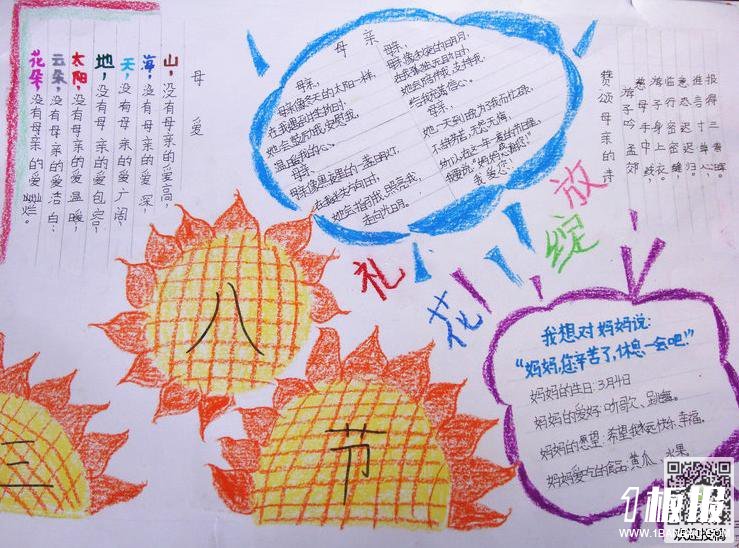 母爱
山,没有母亲的爱高,
海,没有母亲的爱深,
天,没有母亲的爱广阔,
地,没有母亲的爱包容,
太阳,没有母亲的爱温暖,
云朵,没有母亲的爱洁白,
花朵,没有母亲的爱灿烂。
母亲
母亲,
母亲像冬天的太阳一样,
在我遇到
她会鼓励我,安慰我,
温暖我的心。
母亲,
母亲像黑夜里的一盏明灯,
在我迷失方向时,
她会指引我,照亮我,
走向光明。
母亲,
母亲像
在我孤独无助时,
她会陪伴我,支持我,
给我无穷信心。
母亲,
她一天到晚为了我而忙碌,
不怕辛苦,无怨无悔,
所以在这一年一度的节日里,
我要说:“妈妈,感谢您!
我爱您!”
赞颂母亲的诗
游子吟 孟郊
慈母手中线,
游子身上衣。
临行密密缝,
意恐迟迟归。
谁言寸草心,
报得三春晖。
礼花绽放
三八节
我想对妈妈说:
“妈妈,您辛苦了,休息一会吧!”
妈妈的生日:3月4日
妈妈的爱好:听歌、跳舞。
妈妈的愿望:希望我永远快乐、幸福。
妈妈爱吃的食品:黄瓜、水果
1板报
WWW.1BANBAO.COM
欢迎投稿